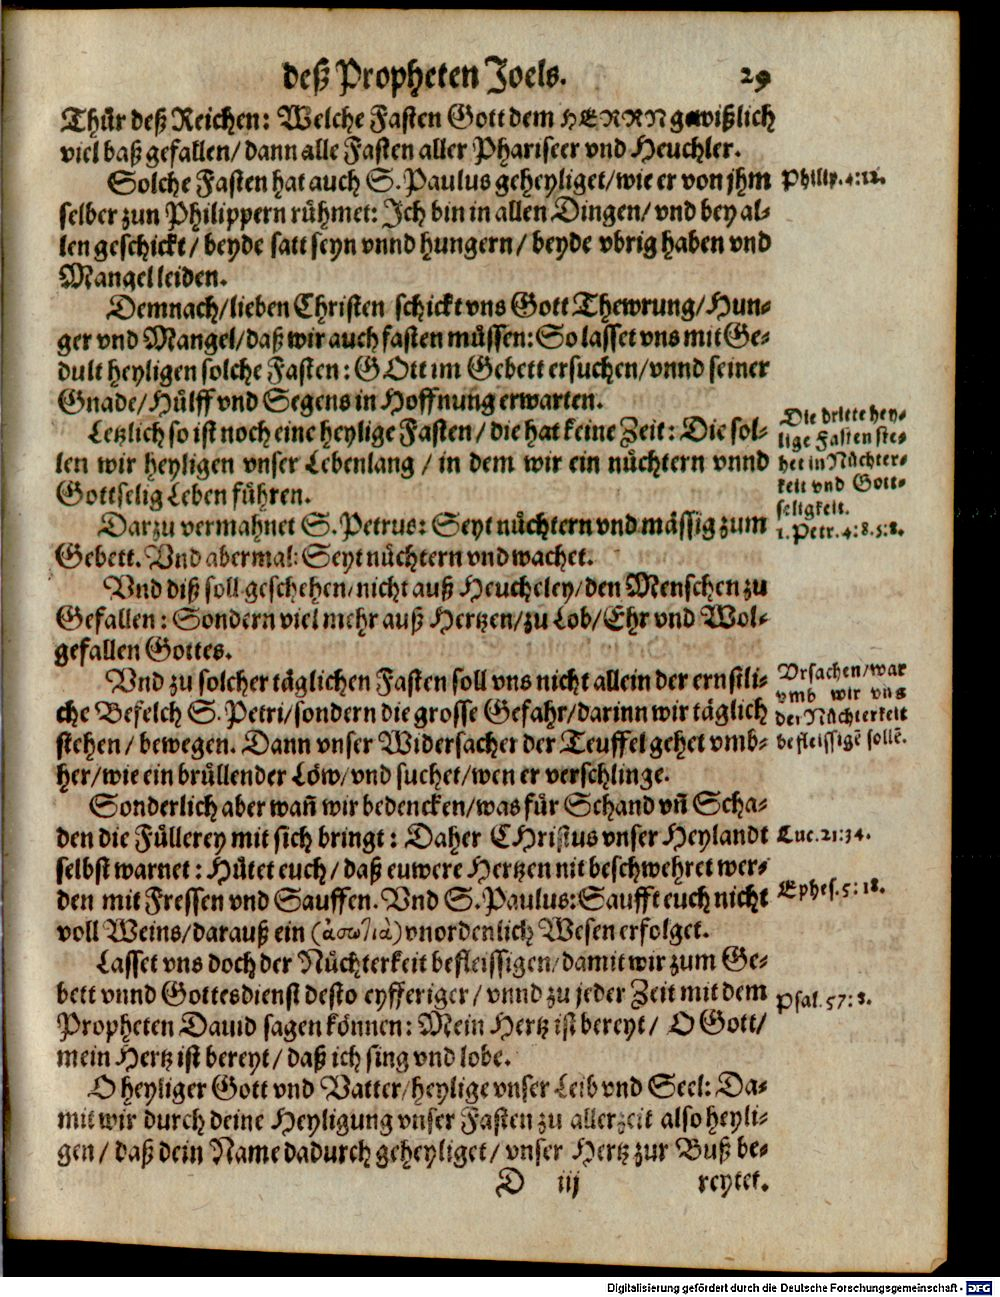 deß Propheten Joels. 29
Thür deß Reichen: Welche Fasten Gott dem HERRN gewißlich
viel baß gefallen/ dann alle Fasten aller Phariseer vnd Heuchler.
Solche Fasten hat auch S. Paulus geheyliget/ wie er von jhm
Philip. 4:12.
selber zun Philippern rühmet: Ich bin in allen Dingen/ vnd bey al-
len geschickt/ beyde satt seyn vnnd hungern/ beyde vbrig haben vnd
Mangel leiden.
Demnach/ lieben Christen schickt vns Gott Thewrung/ Hun-
ger vnd Mangel/ daß wir auch fasten müssen: So lasset vns mit Ge-
dult heyligen solche Fasten: GOtt im Gebett ersuchen/ vnnd seiner
Gnade/ Hülff vnd Segens in Hoffnung erwarten.
Letzlich so ist noch eine heylige Fasten/ die hat keine Zeit: Die sol-
len wir heyligen vnser Lebenlang/ in dem wir ein nüchtern vnnd
Gottselig Leben führen.
Die dritte hey-
lige Fasten ste-
het in Nüchter-
keit vnd Gott-
seligkeit.
1. Petr. 4:8. 5:8.
Darzu vermahnet S. Petrus: Seyt nüchtern vnd mässig zum
Gebett. Vnd abermal: Seyt nüchtern vnd wachet.
Vnd diß soll geschehen/ nicht auß Heucheley/ den Menschen zu
Gefallen: Sondern viel mehr auß Hertzen/ zu Lob/ Ehr vnd Wol-
gefallen Gottes.
Vnd zu solcher täglichen Fasten soll vns nicht allein der ernstli-
che Befelch S. Petri/ sondern die grosse Gefahr/ darinn wir täglich
stehen/ bewegen. Dann vnser Widersacher der Teuffel gehet vmb-
her/ wie ein brüllender Löw/ vnd suchet/ wen er verschlinge.
Vrsachen/ war
vmb wir vns
der Nüchterkeit
befleissigē sollē.
Sonderlich aber wañ wir bedencken/ was für Schand vñ Scha-
den die Füllerey mit sich bringt: Daher CHristus vnser Heylandt
Luc. 21:34.
selbst warnet: Hütet euch/ daß euwere Hertzen nit beschwehret wer-
den mit Fressen vnd Sauffen. Vnd S. Paulus: Saufft euch nicht
Ephes. 5:18.
voll Weins/ darauß ein (ἀσωτία) vnordenlich Wesen erfolget.
Lasset vns doch der Nüchterkeit befleissigen/ damit wir zum Ge-
bett vnnd Gottesdienst desto eyfferiger/ vnnd zu jeder Zeit mit dem
Psal. 57:8.
Propheten Dauid sagen können: Mein Hertz ist bereyt/ O Gott/
mein Hertz ist bereyt/ daß ich sing vnd lobe.
O heyliger Gott vnd Vatter/ heylige vnser Leib vnd Seel: Da-
mit wir durch deine Heyligung vnser Fasten zu allerzeit also heyli-
gen/ daß dein Name dadurch geheyliget/ vnser Hertz zur Buß be-
D iij reytet.
Digitalisierung gefördert durch die Deutsche Forschungsgemeinschaft - DFG